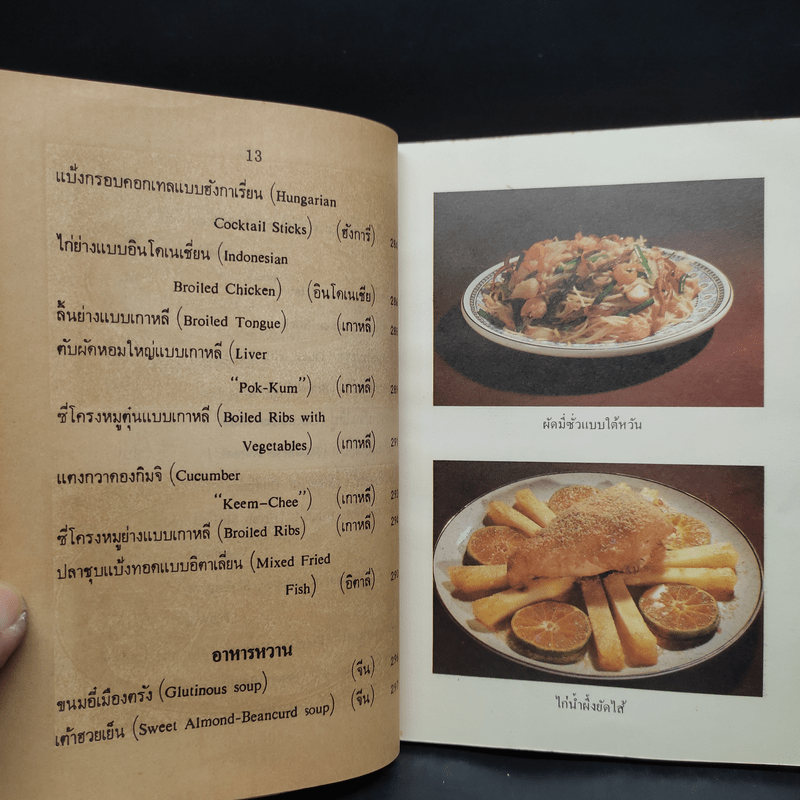 13
แป้งกรอบคอกเทลแบบฮังกาเรี่ยน (Hungarian
Cocktail Sticks) (ฮังการี)
ไก่ย่างแบบอินโดเนเซี่ยน (Indonesian
Broiled Chicken) (อินโดเนเซีย)
ลิ้นย่างแบบเกาหลี (Broiled Tongue) (เกาหลี)
ตับผัดหอมใหญ่แบบเกาหลี (Liver
“Pok-Kum”) (เกาหลี)
ซี่โครงหมูตุ๋นแบบเกาหลี (Boiled Ribs with
Vegetables) (เกาหลี) 291
แตงกวาดองกิมจิ (Cucumber
“Keem-Chee”) (เกาหลี)
ซี่โครงหมูย่างแบบเกาหลี (Broiled Ribs) (เกาหลี)
ปลาชุบแป้งทอดแบบอิตาเลี่ยน (Mixed Fried
Fish) (อิตาลี)
อาหารหวาน
ขนมอี๋เมืองตรัง (Glutinous soup) (จีน)
เต้าฮวยเย็น (Sweet Almond-Beancurd soup) (จีน)
ผัดมี่ซั่วแบบใต้หวัน
ไก่น้ำผึ้งยัดไส้